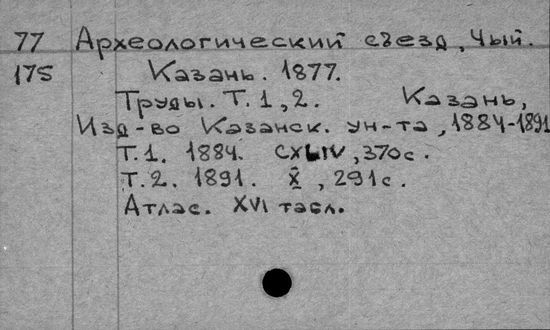 77 Археологический съезд, 4ый.
175 Казань. 1877.
Труды. Т. 1, 2. Казань,
Изд-во Казанск. ун-та, 1884-1891
Т. 1. 1884. CXLIV, 370 с.
Т. 2. 1891. X, 291 с.
Атлас. XVI табл.